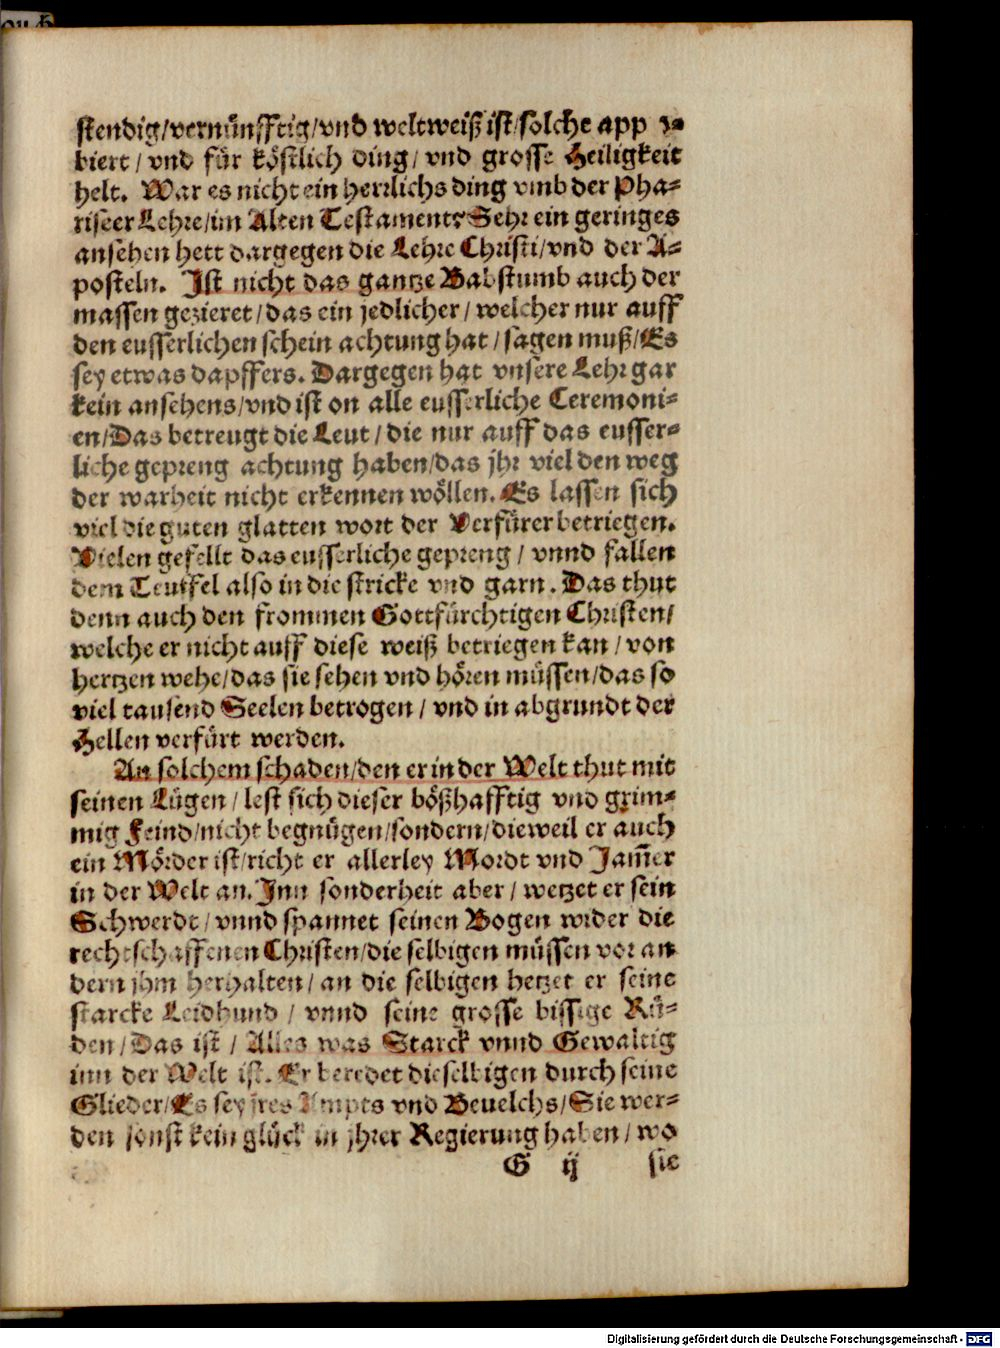 stendig/vernünfftig/vnd weltweiß ist/solche app ro
biert/vnd für köstlich ding/vnd grosse Heiligkeit
helt. War es nicht ein herrlichs ding vmb der Pha-
riseer Lehre/im Alten Testament? Sehr ein geringes
ansehen hett dargegen die Lehre Christi/vnd der A-
posteln. Ist nicht das gantze Babstumb auch der
massen gezieret/das ein jedlicher/welcher nur auff
den eusserlichen schein achtung hat/sagen muß/Es
sey etwas dapffers. Dargegen hat vnsere Lehr gar
kein ansehens/vnd ist on alle eusserliche Ceremoni-
en/Das betreugt die Leut/die nur auff das eusser-
liche gepreng achtung haben/das jhr viel den weg
der warheit nicht erkennen wöllen. Es lassen sich
viel die guten glatten wort der Verfürer betriegen.
Vielen gefellt das eusserliche gepreng/vnnd fallen
dem Teuffel also in die stricke vnd garn. Das thut
denn auch den frommen Gottfürchtigen Christen/
welche er nicht auff diese weiß betriegen kan/von
hertzen wehe/das sie sehen vnd hören müssen/das so
viel tausend Seelen betrogen/vnd in abgrundt der
Hellen verfürt werden.
An solchem schaden/den er in der Welt thut mit
seinen Lügen/lest sich dieser bößhafftig vnd grim-
mig Feind/nicht begnügen/sondern/dieweil er auch
ein Mörder ist/richt er allerley Mordt vnd Jam̃er
in der Welt an. Inn sonderheit aber/wetzet er sein
Schwerdt/vnnd spannet seinen Bogen wider die
rechtschaffenen Christen/die selbigen müssen vor an
dern jhm herhalten/an die selbigen hetzet er seine
starcke Leidhund/vnnd seine grosse bissige Rü-
den/Das ist/Alles was Starck vnnd Gewaltig
inn der Welt ist. Er beredet dieselbigen durch seine
Glieder/Es sey jres Ampts vnd Beuelchs/Sie wer-
den sonst kein glück in jhrer Regierung haben/wo
G ij sie
Digitalisierung gefördert durch die Deutsche Forschungsgemeinschaft - DFG